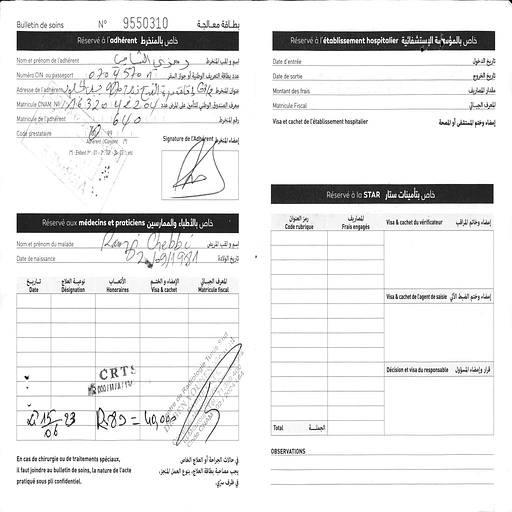 Bulletin de soins N° 9550310 بطاقة معالجة
Réservé à l'adhérent خاص بالمنخرط
Nom et prénom de l'adhérent رمزي الشابي اسم و لقب المنخرط
Numéro CIN ou passeport عدد بطاقة التعريف الوطنية أو جواز السفر
Adresse de l'adhérent عنوان المنخرط
Matricule CNAM
Matricule de l'adhérent 640 رقم المنخرط
Code prestataire
Signature de l'Adhérent إمضاء المنخرط
Réservé aux médecins et praticiens خاص بالأطباء والممارسين
Nom et prénom du malade Ramzi Chebbi اسم و لقب المريض
Date de naissance 02/09/1981 تاريخ الولادة
تاريخ نوعية العلاج الأتعاب الإمضاء و الختم المعرف الجبائي
Date Désignation Honoraires Visa & cachet Matricule fiscal
CRTS
15/06 23 R89 = 40,000
En cas de chirurgie ou de traitements spéciaux,
il faut joindre au bulletin de soins, la nature de l'acte
pratiqué sous pli confidentiel.
في حالات الجراحة أو العلاج الخاص
يجب مصاحبة بطاقة العلاج، بنوع العمل المنجز،
في ظرف سري.
Réservé à l'établissement hospitalier خاص بالمؤسسة الإستشفائية
Date d'entrée تاريخ الدخول
Date de sortie تاريخ الخروج
Montant des frais مقدار المصاريف
Matricule Fiscal المعرف الجبائي
Visa et cachet de l'établissement hospitalier إمضاء وختم المستشفى أو المصحة
Réservé à la STAR خاص بتأمينات ستار
رمز العنوان المصاريف
Code rubrique Frais engagés
Visa & cachet du vérificateur إمضاء وخاتم المراقب
Visa & cachet de l'agent de saisie إمضاء وختم الضبط الآلي
Décision et visa du responsable قرار وإمضاء المسؤول
Total الجملة
OBSERVATIONS